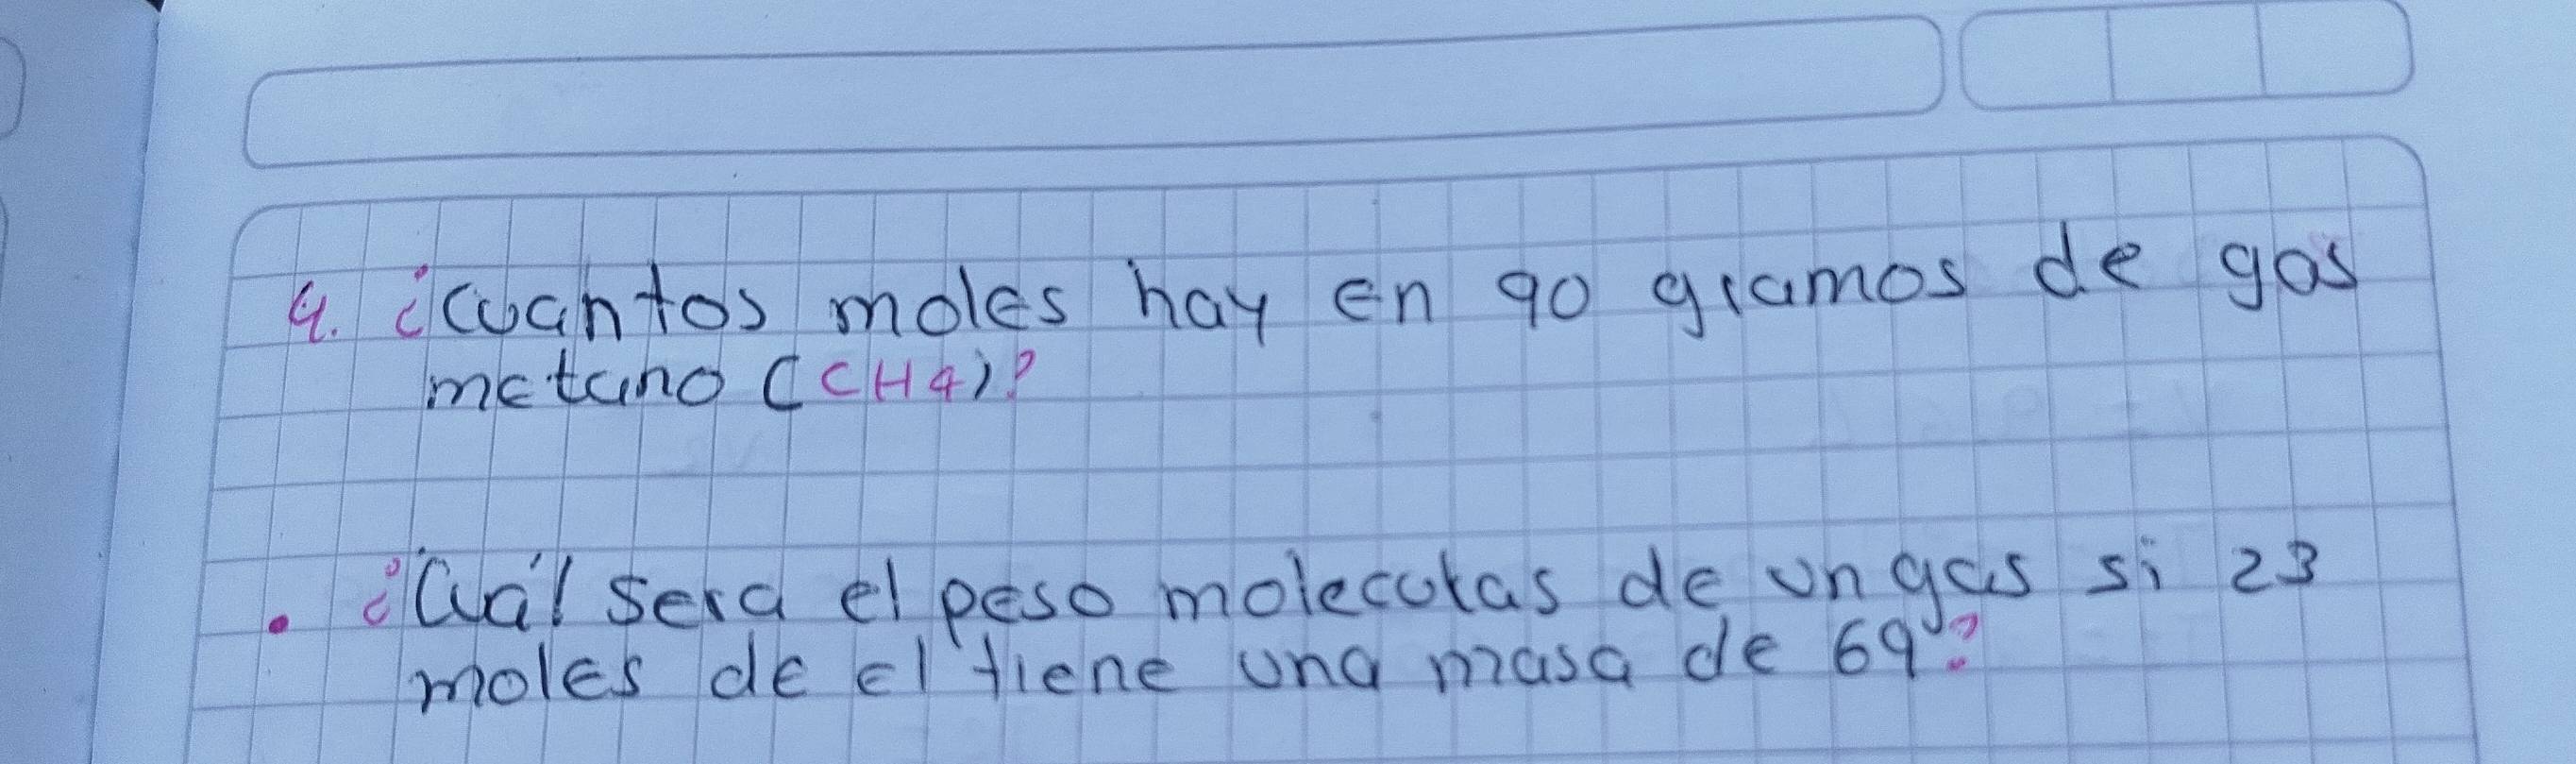 4. ¿Cuantos moles hay en 90 gramos de gas
metano (CH4)?
. ¿Cuál sera el peso moleculas de un gas si 23
moles de el tiene una masa de 69?